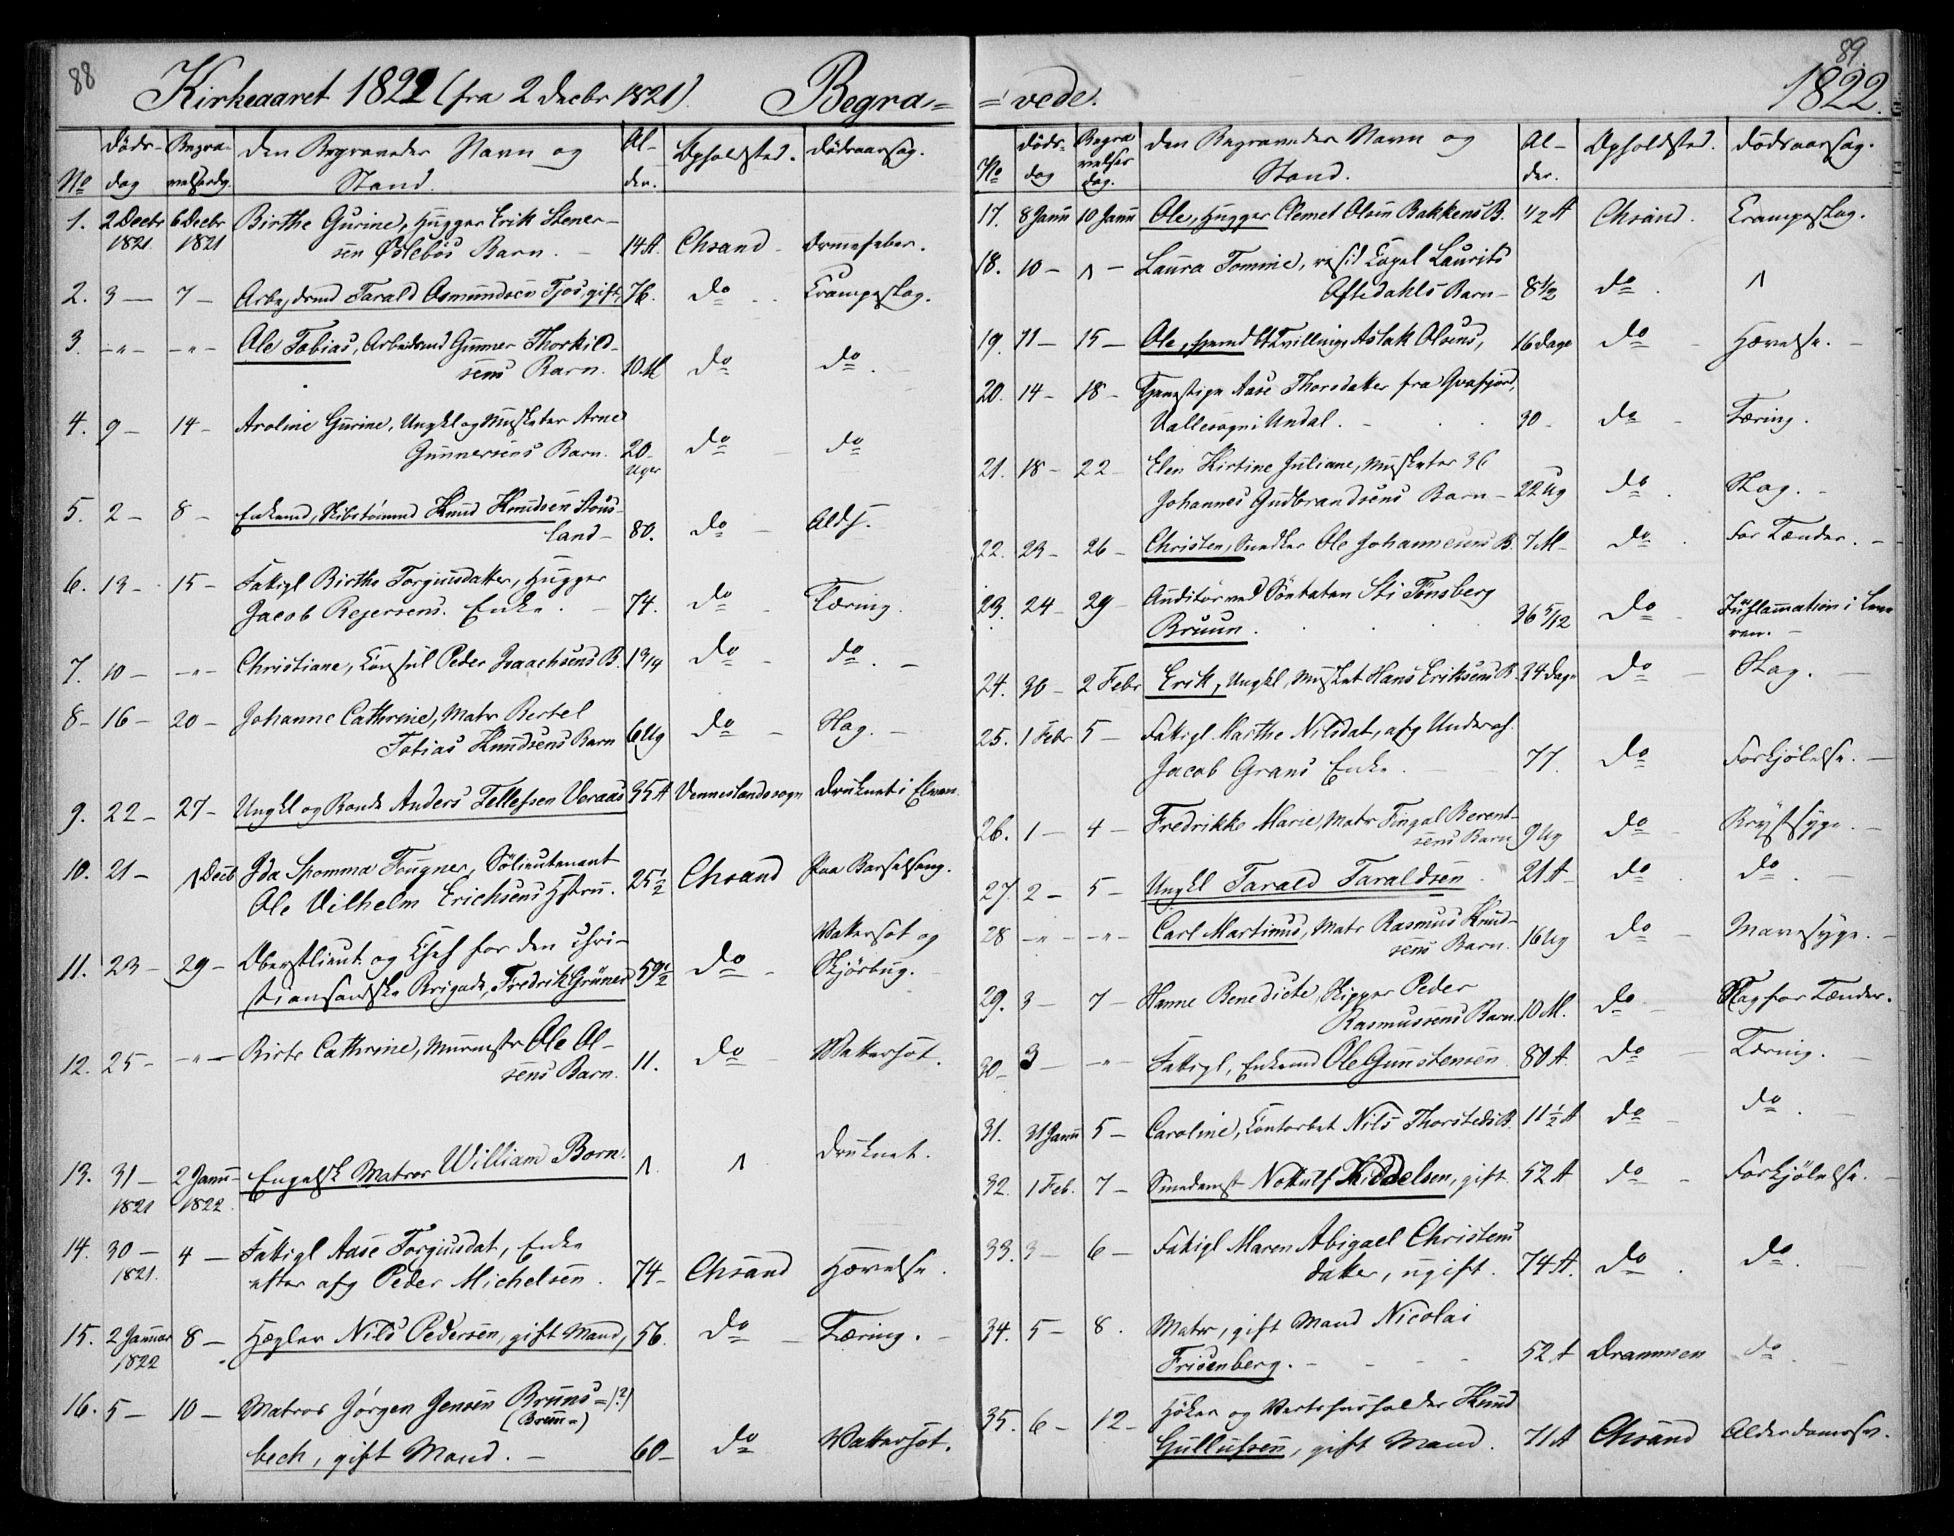 88
Kirkeaaret 1822 (fra 2 Decbr 1821). Begra=
No Døds-dag Begra-velsesdg. Den Begravedes Navn og Stand. Al-der. Opholdsted. Dødsaarsag.
1. 2 Decbr 1821 6 Decbr 1821 Birthe Gurine, Hugger Erik Stener-
sen Øslebøs Barn. 14 A. Chrsand
2. 3 — 7 — Arbejdsmd Tarald Asmundsen Tjos, gift, 76. do Krampeslag.
3. —"— —"— Ole Tobias, Arbeidsmd Gunner Thorkild-
sens Barn. 10 M do do.
4. 9 — 14 — Aroline Gurine, Ungkl og Musketer Arne
Gunnersens Barn. 20 Uger do do
5. 2 — 8 — Enkemd, Skibstømmd Knud Knudsen
land — 80. do Alds.
6. 13 — 15 — Fattigl Birthe Torgiusdatter, Hugger
Jacob Rejersens Enke. 74. do Tæring.
7. 10 — —"— Christiane, Consul Peder Isaachsens B. do do.
8 — 16 — 20 — Johanne Cathrine, Matr Bertel
Tobias Knudsens Barn 6 Ug do Slag.
9. 22 — 27 — Ungkl og Bonde Anders Tellefsen Veraas 35 A Venneslandssogn Druknet i Elven.
10. 21 — Λ Decb Ida Fougner, Sølieutenant
Ole Vilhelm Erichsens Hustru. 25½ Chrsand Paa Barselseng.
11. 23 — 29 — Oberstlieut. og Chef for den Chri-
stiansandske Brigade, Fredrik Grüner 59½ do Vattersot og
Skjørbug.
12. 25 — —"— Birte Cathrine, Murmestr Ole Ol-
sens Barn. 11. do Vattersot.
13. 31 — 1821 2 Janu 1822. Engelsk Matros William Born. Λ. Λ Druknet.
14. 30 — 1821. 4 — Fattigl Aase Torgiusdat, Enke
efter afg Peder Michelsen. 74 — Chrsand Hævelse.
15. 2 Januar 1822 8 — Hægler Nils Pedersen, gift Mand, 56. do Tæring.
16. 5 — 10 — Matros Jørgen Jensen Bruns=(?)
(Brun=)
bech, gift Mand. — 60 — do Vattersot.
89.
=vede. 1822.
No Døds-dag Begra-velses dag. Den Begravedes Navn og Stand. Al-der. Opholdsted. Dødsaarsag.
17. 8 Janu 10 Janu Ole, Hugger Clemet Olsen Bakkens B. ½ A Chrsand. Krampeslag.
18. 10 — Λ — Laura Tomine, resid Capel Laurits
Aftedahls Barn — 8½ do. Λ
19. 11 — 15 — Ole, Tvilling, Aslak Olsens, 16 Dage do Hævelse.
20. 14 — 18 — Tjenestpige Aase Thorsdatter fra
Vallesogn i Undal. 30 — do Tæring.
21. 18 — 22 — Elen Kirtine Juliane, Musketer
Johannes Gudbrandsens Barn — 22 Ug do Slag.
22. 23 — 26 — Christen, Snedker Ole Johannesens B. 7 M — do For Tænder.
23. 24 — 29 — Auditør ved Søetaten Sti Tønsberg
Bruun. 36 5/12 do Inflammation i Leve
ren.
24. 30 — 2 Febr Erik, Ungkl, Musket Hans Eriksens B. 34 Dage do Slag.
25. 1 Febr 5 — Fattigl Marthe Nilsdat, afg Underof.
Jacob Grans Enke. 77. do Forkjølelse.
26. 1 — 4 — Fredrikke Marie, Matr Fingal Berent-
sens Barn 9 Ug do Brystsyge.
27. 2 — 5 — Ungkl Tarald Taraldsen 21 A — do do.
28 —"— —"— Carl Martinus, Matr Rasmus Knud-
sens Barn. 16 Ug do Mavesyge.
29. 3 — 7 — Hanne Benedicte, Skipper Peder
Rasmussens Barn. 10 M. do Slag for Tænder.
30 — 3 — —"— Fattigl, Enkemd Ole Gunstensen 80 A. do Tæring.
31. 31 Janu 5 — Caroline, Contorbet Nils Thorsteds B. 11½ A do do.
32. 1 Feb. 7 — Smedemst Notulf Kiddelsen, gift 52 A do Forkjølelse.
33. 3 — 6 — Fattigl Maren Abigael Christens
datter, ugift. 74 A. do do.
34. 5 — 8. Matr, gift Mand Nicolai
Frisenberg. 52 A Drammen do
35. 6 — 12 — Høker og Vertshusholder Knud
Gullufsen, gift Mand. 71 A Chrsand Alderdomssv.